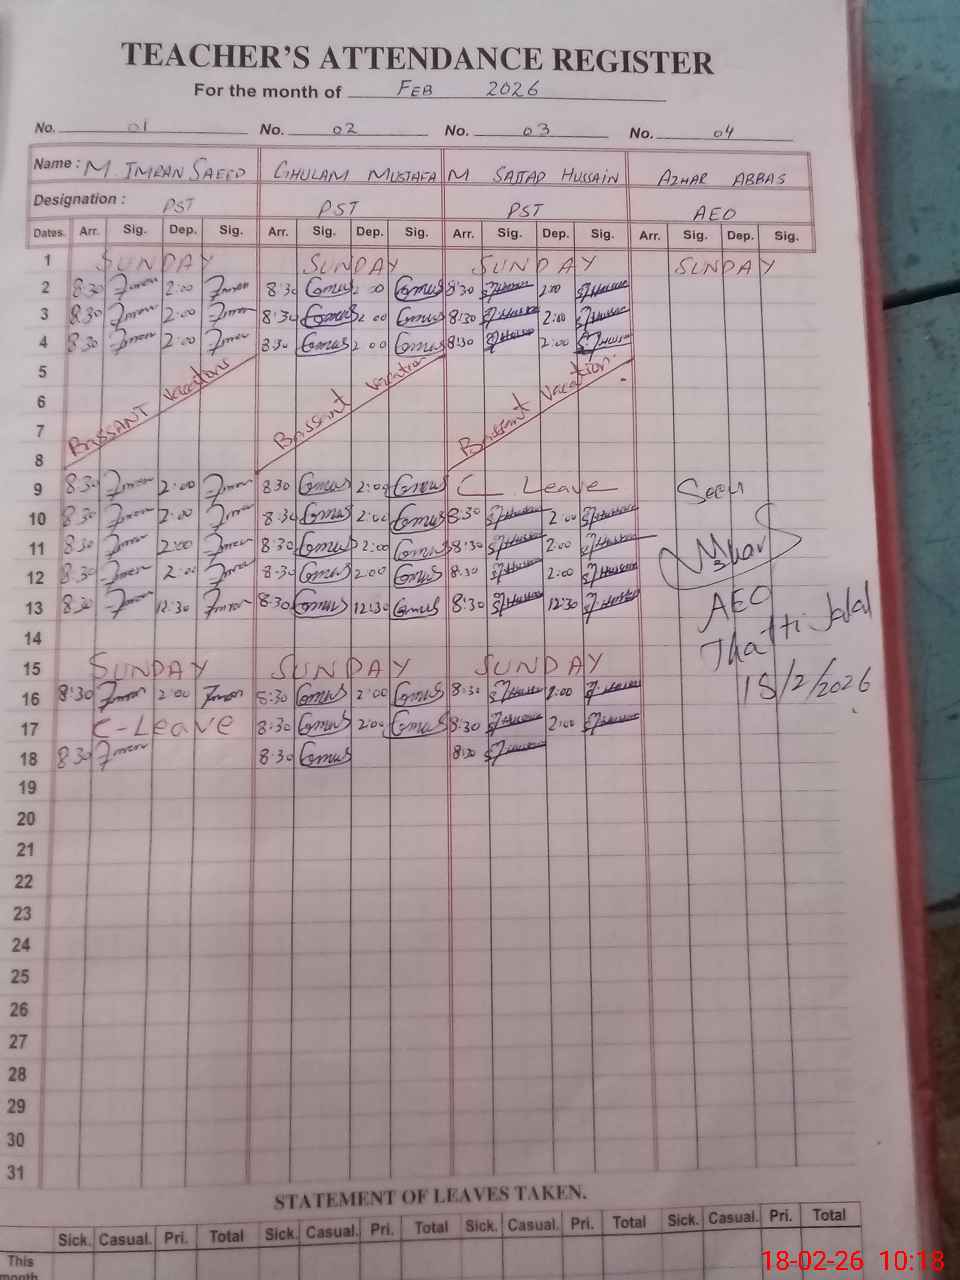 TEACHER'S ATTENDANCE REGISTER
For the month of FEB 2026
No. 01 No. 02 No. 03 No. 04
Name : M. IMRAN SAEED GHULAM MUSTAFA M SAJJAD HUSSAIN AZHAR ABBAS
Designation : PST PST PST AEO
Dates. Arr. Sig. Dep. Sig. Arr. Sig. Dep. Sig. Arr. Sig. Dep. Sig. Arr. Sig. Dep. Sig.
1 SUNDAY SUNDAY SUNDAY SUNDAY
2 8:30 Imran 2:00 Imran 8:30 Gmus 2:00 Gmus 8:30 SJHussain 2:00 SJHussain
3 8:30 Imran 2:00 Imran 8:30 Gmus 2:00 Gmus 8:30 SJHussain 2:00 SJHussain
4 8:30 Imran 2:00 Imran 8:30 Gmus 2:00 Gmus 8:30 SJHussain 2:00 SJHussain
5
6
7 BASSANT Vacations Bassant Vacation Bassant Vacation.
8
9 8:30 Imran 2:00 Imran 8:30 Gmus 2:00 Gmus C. Leave Seen
10 8:30 Imran 2:00 Imran 8:30 Gmus 2:00 Gmus 8:30 SJHussain 2:00 SJHussain
11 8:30 Imran 2:00 Imran 8:30 Gmus 2:00 Gmus 8:30 SJHussain 2:00 SJHussain
12 8:30 Imran 2:00 Imran 8:30 Gmus 2:00 Gmus 8:30 SJHussain 2:00 SJHussain
13 8:30 Imran 12:30 Imran 8:30 Gmus 12:30 Gmus 8:30 SJHussain 12:30 SJHussain AEO
14 Thatti Jalal
15 SUNDAY SUNDAY SUNDAY
16 8:30 Imran 2:00 Imran 8:30 Gmus 2:00 Gmus 8:30 SJHussain 2:00 SJHussain 18/2/2026
17 C-Leave 8:30 Gmus 2:00 Gmus 8:30 SJHussain 2:00 SJHussain
18 8:30 Imran 8:30 Gmus 8:30 SJHussain
19
20
21
22
23
24
25
26
27
28
29
30
31
STATEMENT OF LEAVES TAKEN.
Sick. Casual. Pri. Total Sick. Casual. Pri. Total Sick. Casual. Pri. Total Sick. Casual. Pri. Total
This
month
18-02-26 10:18